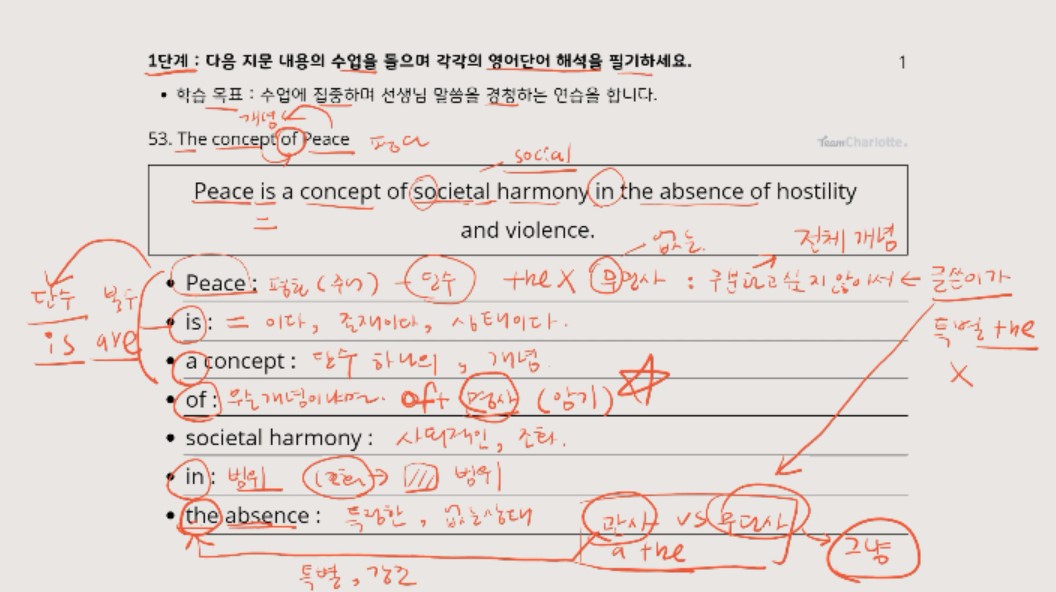 1단계 : 다음 지문 내용의 수업을 들으며 각각의 영어단어 해석을 필기하세요.
1
• 학습 목표 : 수업에 집중하며 선생님 말씀을 경청하는 연습을 합니다.
개념
53. The concept of Peace 평화
TeamCharlotte.
social
Peace is a concept of societal harmony in the absence of hostility
and violence.
=
없는
전체 개념
• Peace : 평화 (주어) - 단수 the X 무명사 : 구분하고 싶지 않아서 ← 글쓴이가
단수 복수
is are
특별 the
X
• is : = 이다, 존재이다, 상태이다.
• a concept : 단수 하나의, 개념.
• of : 무슨 개념이냐면. of + 명사 (암기)
• societal harmony : 사회적인, 조화.
• in : 범위 (조화) → 범위
• the absence : 특정한, 없는상태
관사 VS 무관사
a the
그냥
특별, 강조